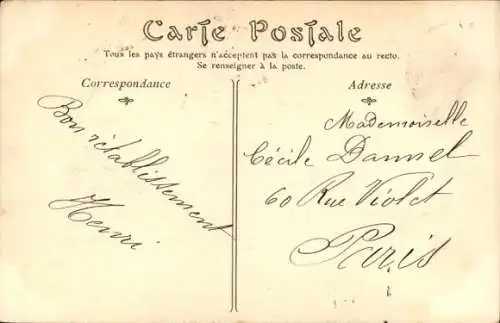 Carte Postale
Tous les pays étrangers n'acceptent pas la correspondance au recto.
Se renseigner à la poste.
Correspondance
Bon rétablissement
Henri
Adresse
Mademoiselle
Cécile Damsel
60 Rue Violet
Paris